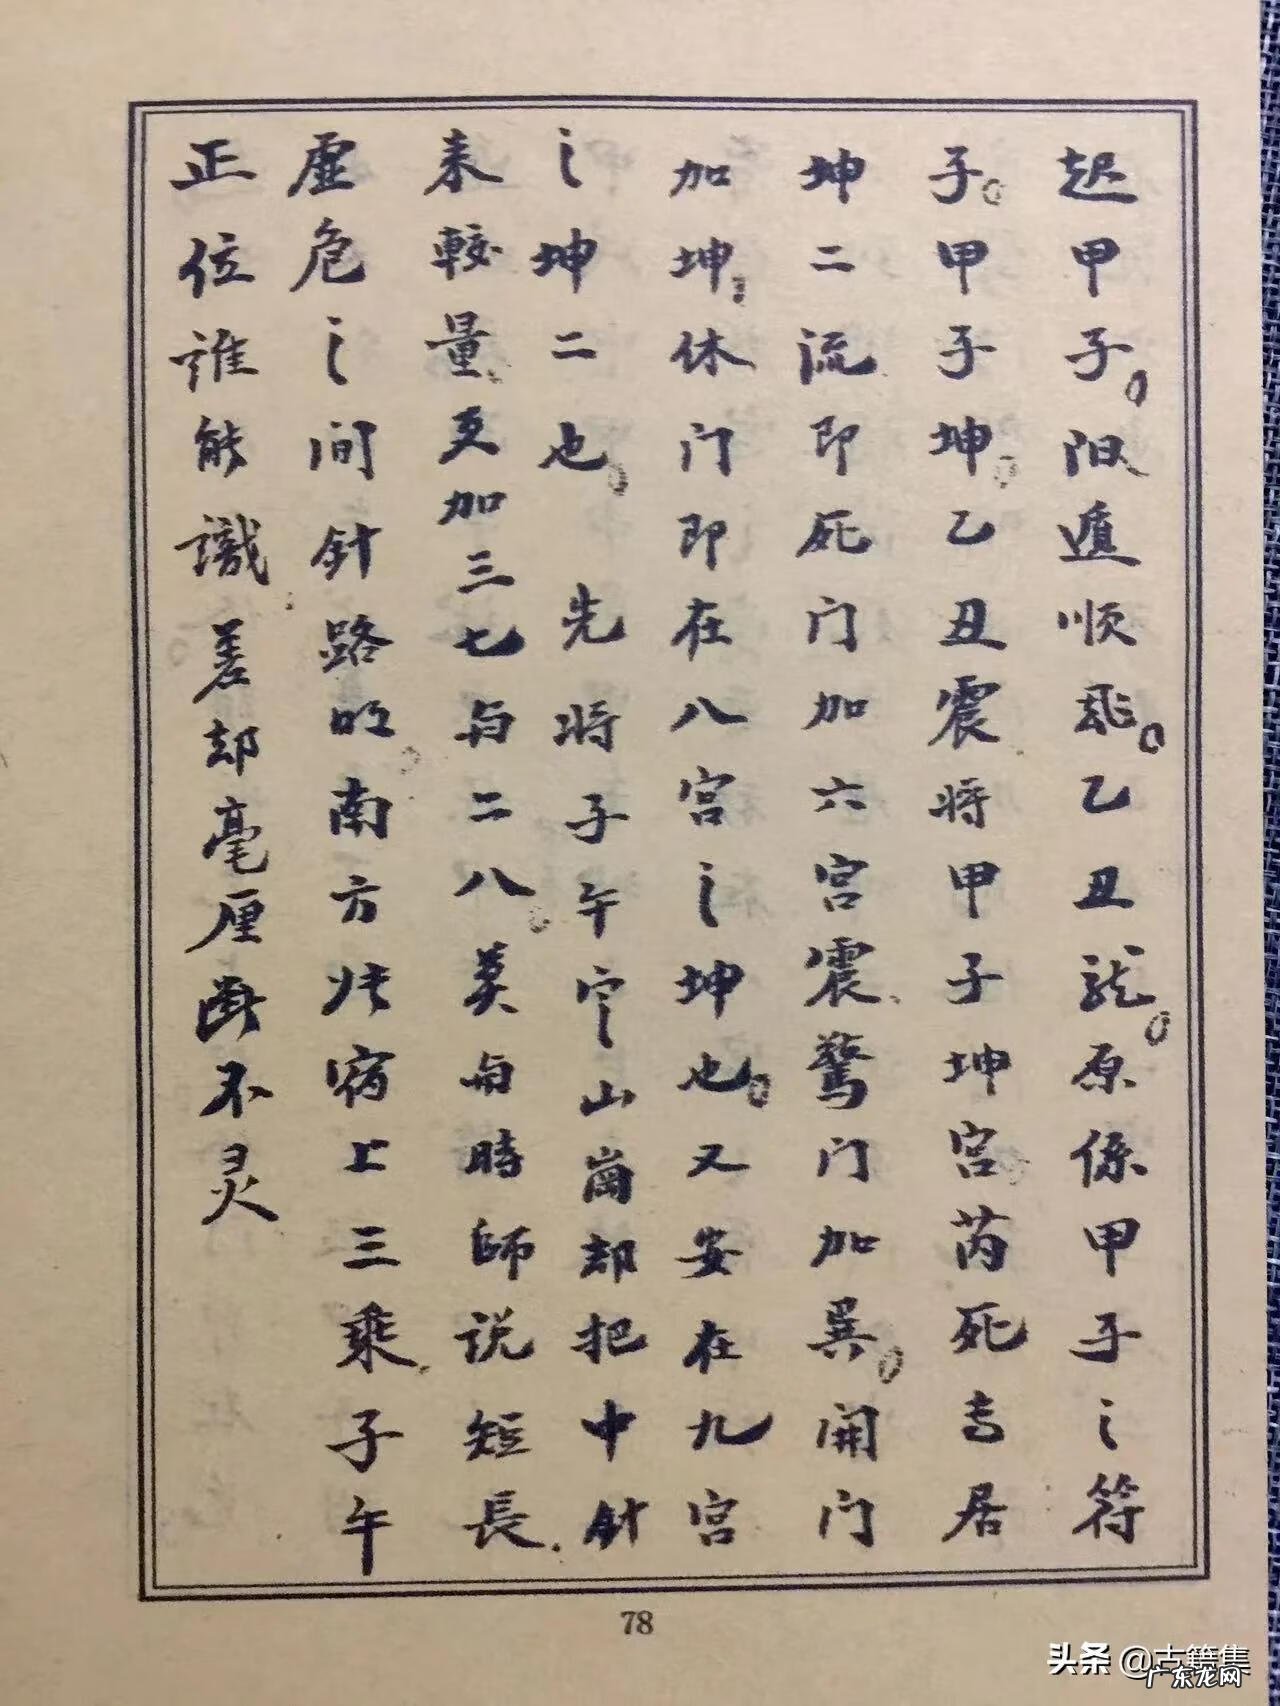 起甲子。阳遁顺飛。乙丑龙。原係甲子之符
子。甲子坤。乙丑震将甲子坤宫芮死专居
坤二流即死门加六宫震、驚门加巽。開门
加坤。休门即在八宫之坤也。又安在九宫
之坤二也。 先将子午定山崗却把中針
来較量。更加三七与二八。莫与時師说短長.
虚危之间針路明。南方张宿上三乘.子午
正位誰能識.差却毫厘断不灵
78
头条 @古籍集
广东龙网